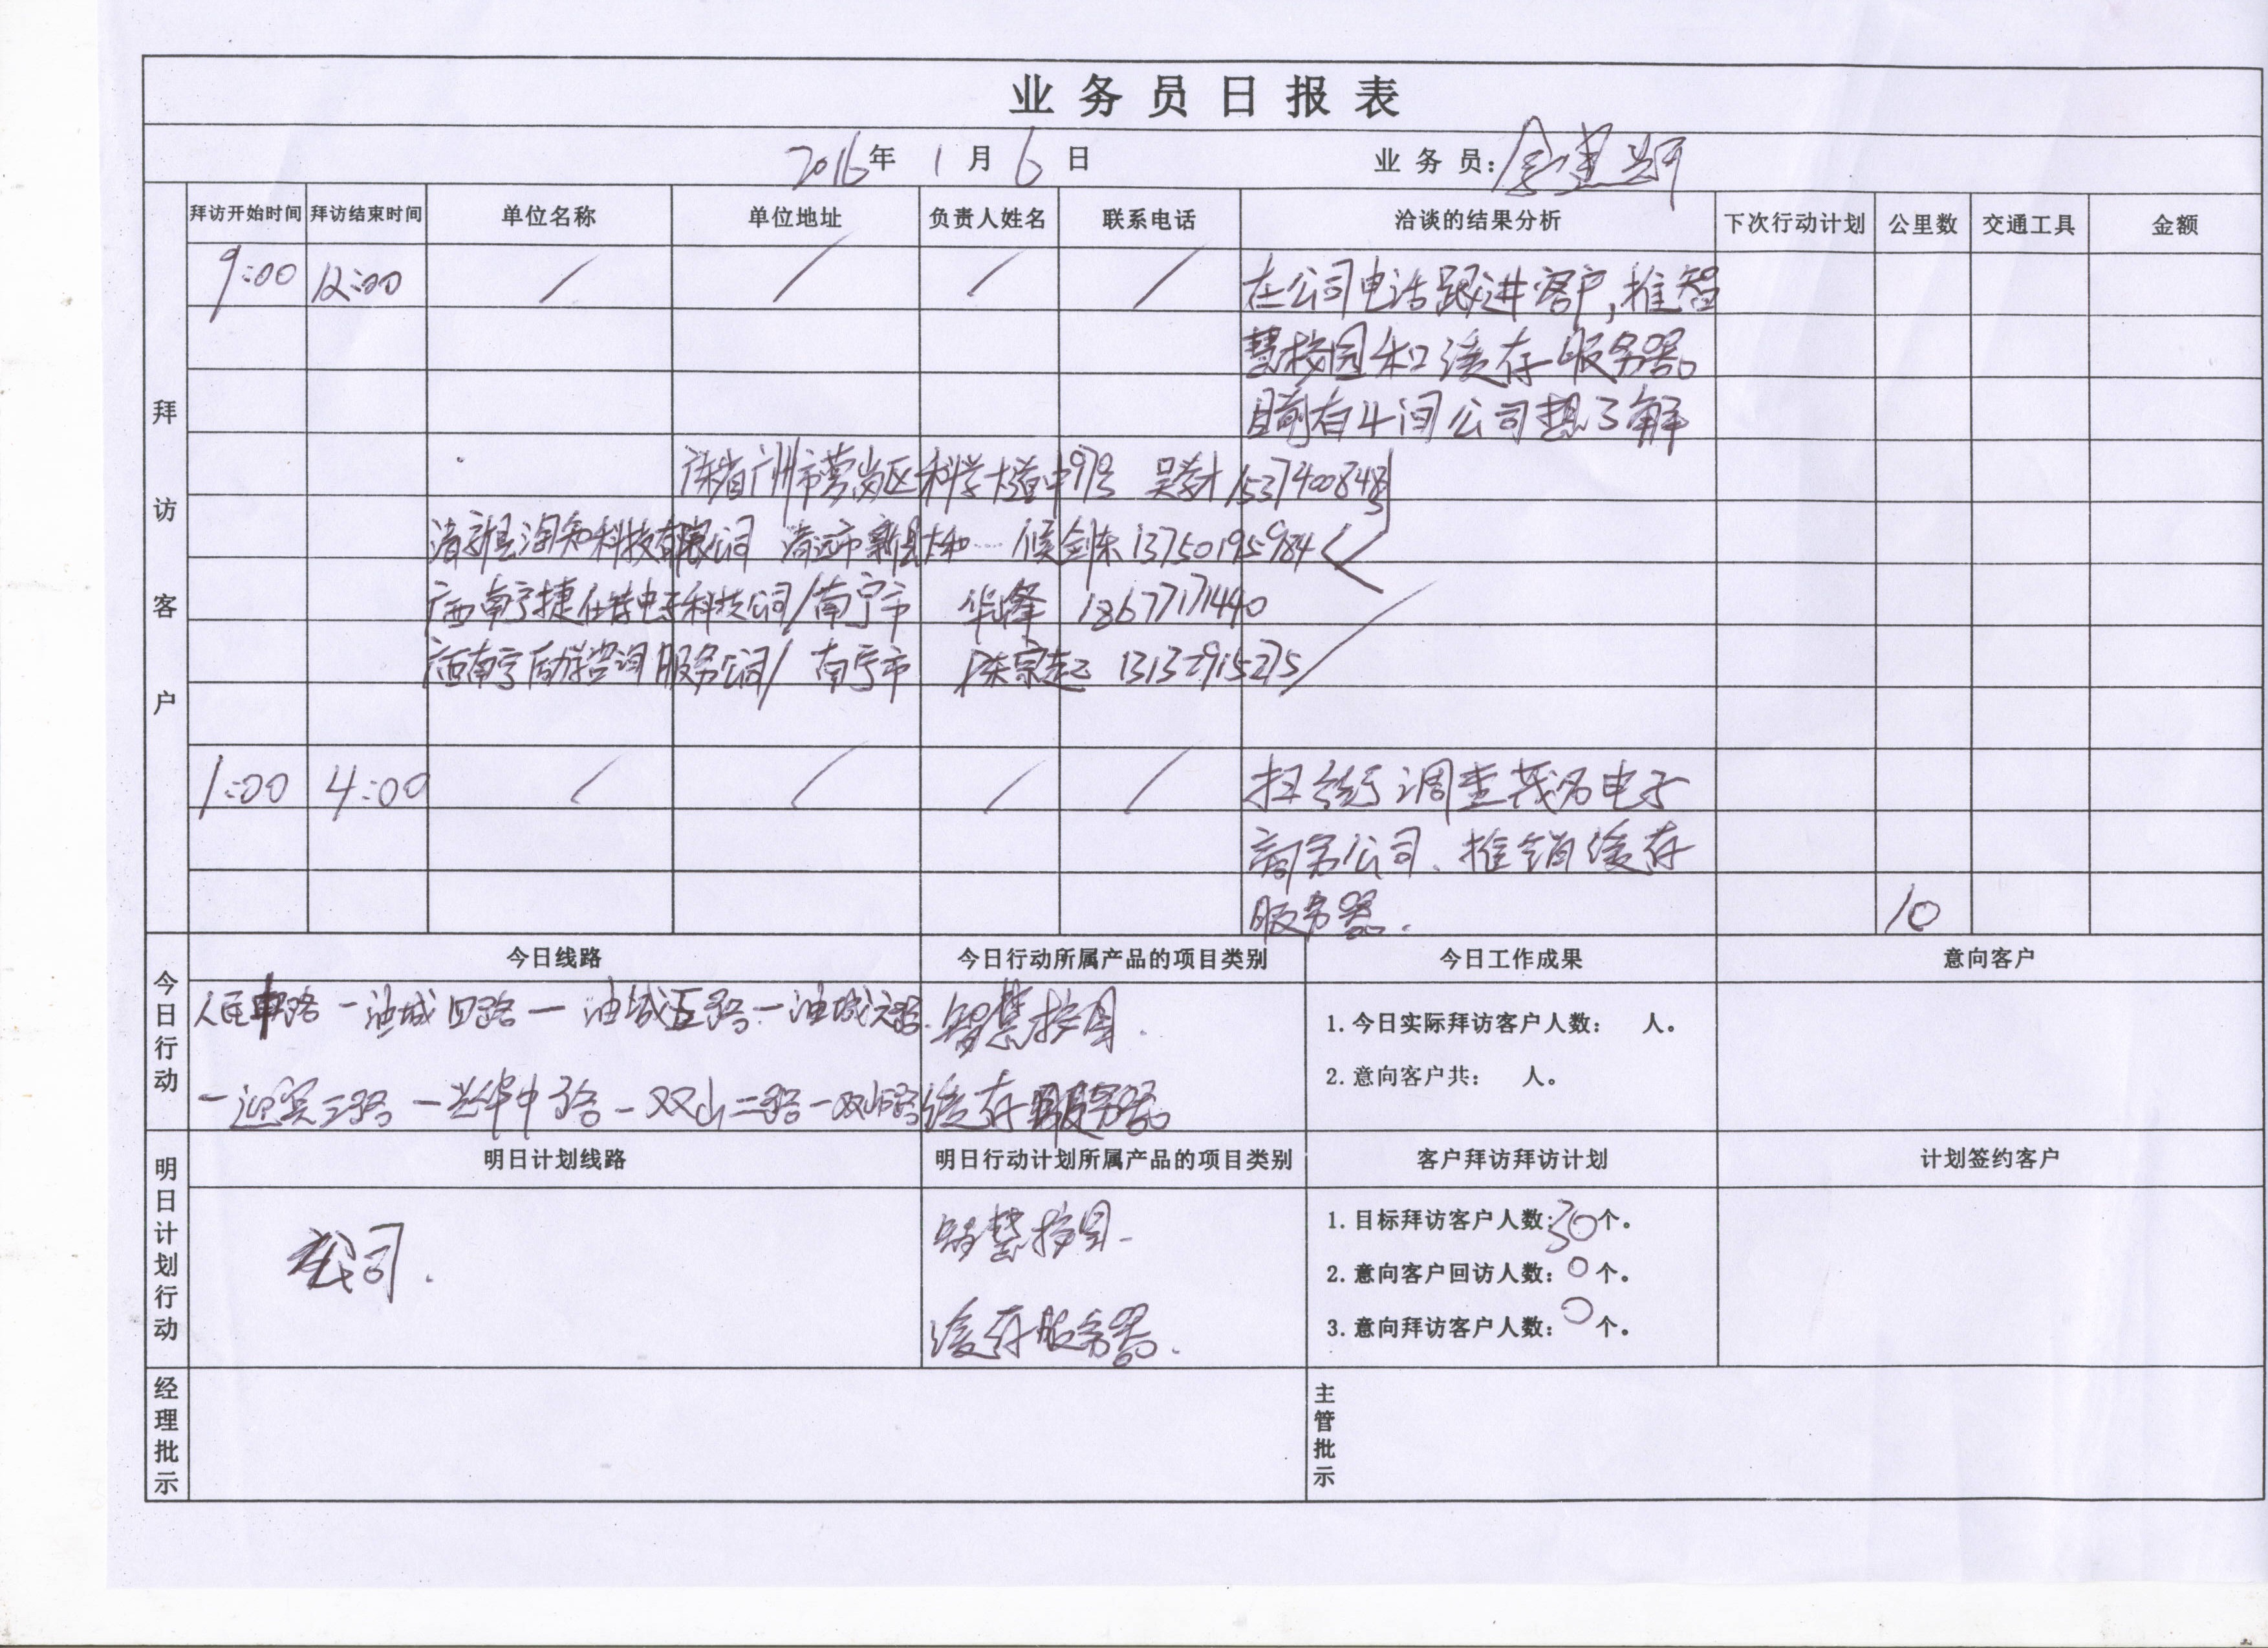 业务员日报表
2016年 1月 6日 业务员:
拜访开始时间 拜访结束时间 单位名称 单位地址 负责人姓名 联系电话 洽谈的结果分析 下次行动计划 公里数 交通工具 金额
拜访客户
9:00 12:00 / / / / 在公司电话跟进客户,推智
慧校园和缓存服务器。
目前有4间公司想了解
广东省广州市萝岗区科学大道中97号 吴 1537400848
清新县淘知科技有限公司 清远市新县太和…… 候剑东 13750195984
广西南宁捷仕特电子科技公司/南宁市 华峰 18677171440
广西南宁 咨询服务公司/ 南宁市 陈宗 13132915275
1:00 4:00 / / / / 扫 调查茂名电子
商务公司、推销缓存
服务器. 10
今日行动
今日线路 今日行动所属产品的项目类别 今日工作成果 意向客户
人民中路—油城四路—油城五路—油城六路. 智慧校园.
—迎宾三路—光华中路—双山二路—双山路 缓存服务器。
1.今日实际拜访客户人数: 人。
2.意向客户共: 人。
明日计划行动
明日计划线路 明日行动计划所属产品的项目类别 客户拜访拜访计划 计划签约客户
在公司.
智慧校园-
缓存服务器.
1.目标拜访客户人数:30个。
2.意向客户回访人数:0个。
3.意向拜访客户人数:0个。
经理批示
主管批示